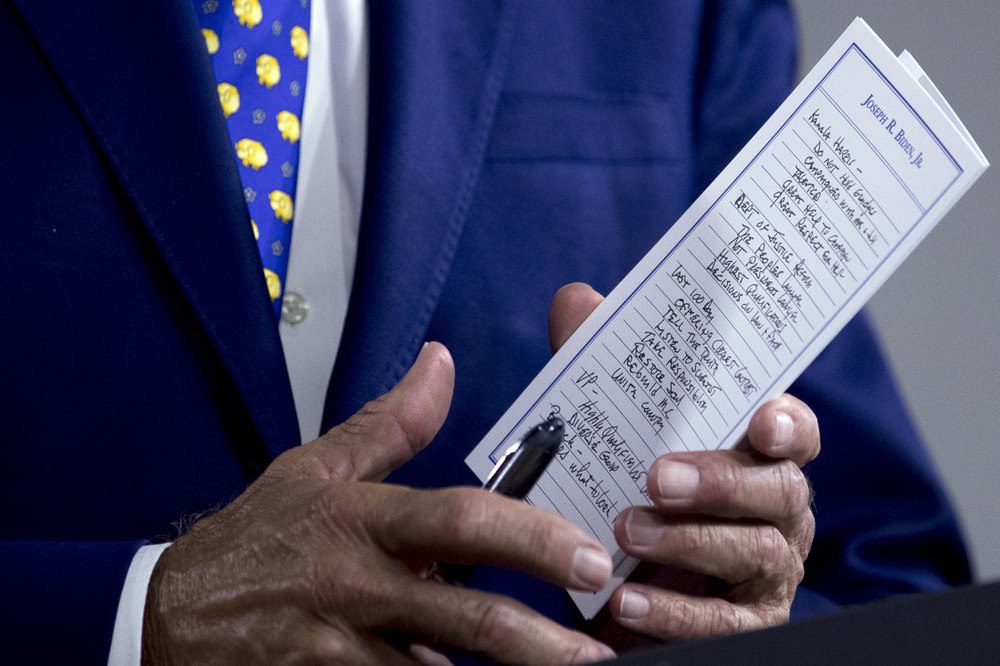 JOSEPH R. BIDEN, JR.
KAMALA HARRIS -
DO NOT HOLD GRUDGES
CAMPAIGNED WITH ME & JILL
TALENTED
GREAT HELP TO CAMPAIGN
GREAT RESPECT FOR HER
DEPT OF JUSTICE
THE PEOPLES LAWYER
NOT PRESIDENT LAWYER
HIGHEST QUALIFICATIONS
DECISIONS ON LAW &
LAST 100 DAY
TELL THE TRUTH
LISTEN TO SCIENTIST
TAKE RESPONSIBILITY
RESTORE SOUL
REBUILD M.C.
UNITE COUNTRY
VP - Highly Qualified
DIVERSE GROUP
what to look